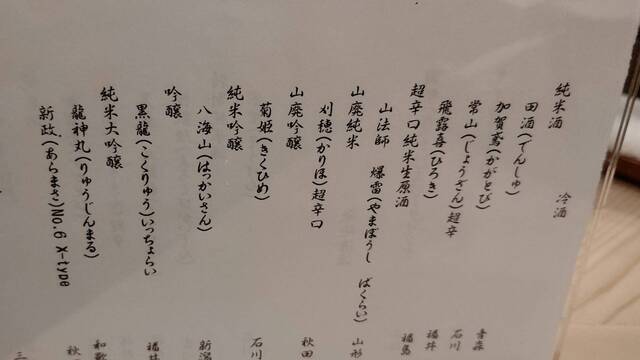 純米酒 冷酒
田酒(でんしゅ) 青森
加賀鳶(かがとび) 石川
常山(じょうざん)超辛 福井
飛露喜(ひろき) 福島
超辛口純米生原酒
山法師 爆雷(やまぼうし ばくらい) 山形
山廃純米
刈穂(かりほ)超辛口 秋田
山廃吟醸
菊姫(きくひめ) 石川
純米吟醸
八海山(はっかいさん) 新潟
吟醸
黒龍(こくりゅう)いっちょらい 福井
純米大吟醸
龍神丸(りゅうじんまる) 和歌
新政(あらまさ)No.6 X-type 秋
三